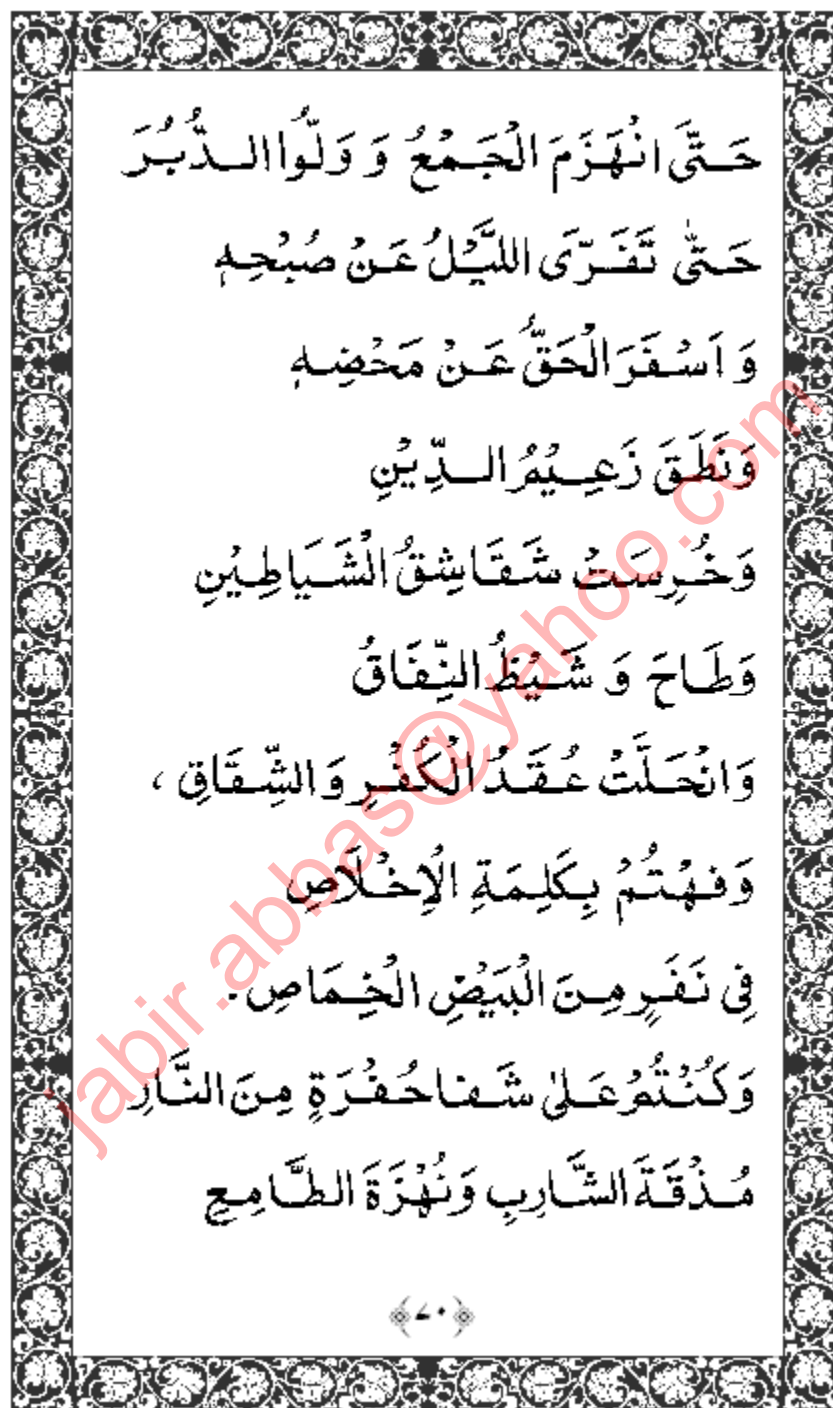 حَتَّى انْهَزَمَ الْجَمْعُ وَ وَلَّوُا الدُّبُرَ
حَتّٰى تَفَرَّى اللَّيْلُ عَنْ صُبْحِهٖ
وَ اَسْفَرَ الْحَقُّ عَنْ مَحْضِهٖ
وَنَطَقَ زَعِيْمُ الدِّيْنِ
وَخُرِسَتْ شَقَاشِقُ الشَّيَاطِيْنِ
وَطَاحَ وَ شَيْظُ النِّفَاقُ
وَانْحَلَّتْ عُقَدُ الْكُفْرِ وَالشِّقَاقِ ،
وَفَهْتُمْ بِكَلِمَةِ الْاِخْلَاصِ
فِى نَفَرٍ مِنَ الْبَيْضِ الْخِمَاصِ.
وَكُنْتُمْ عَلىٰ شَفا حُفْرَةٍ مِنَ النَّارِ
مُذْقَةَ الشَّارِبِ وَنُهْزَةَ الطَّامِعِ
﴿۷۰﴾
jabir.abbas@yahoo.com